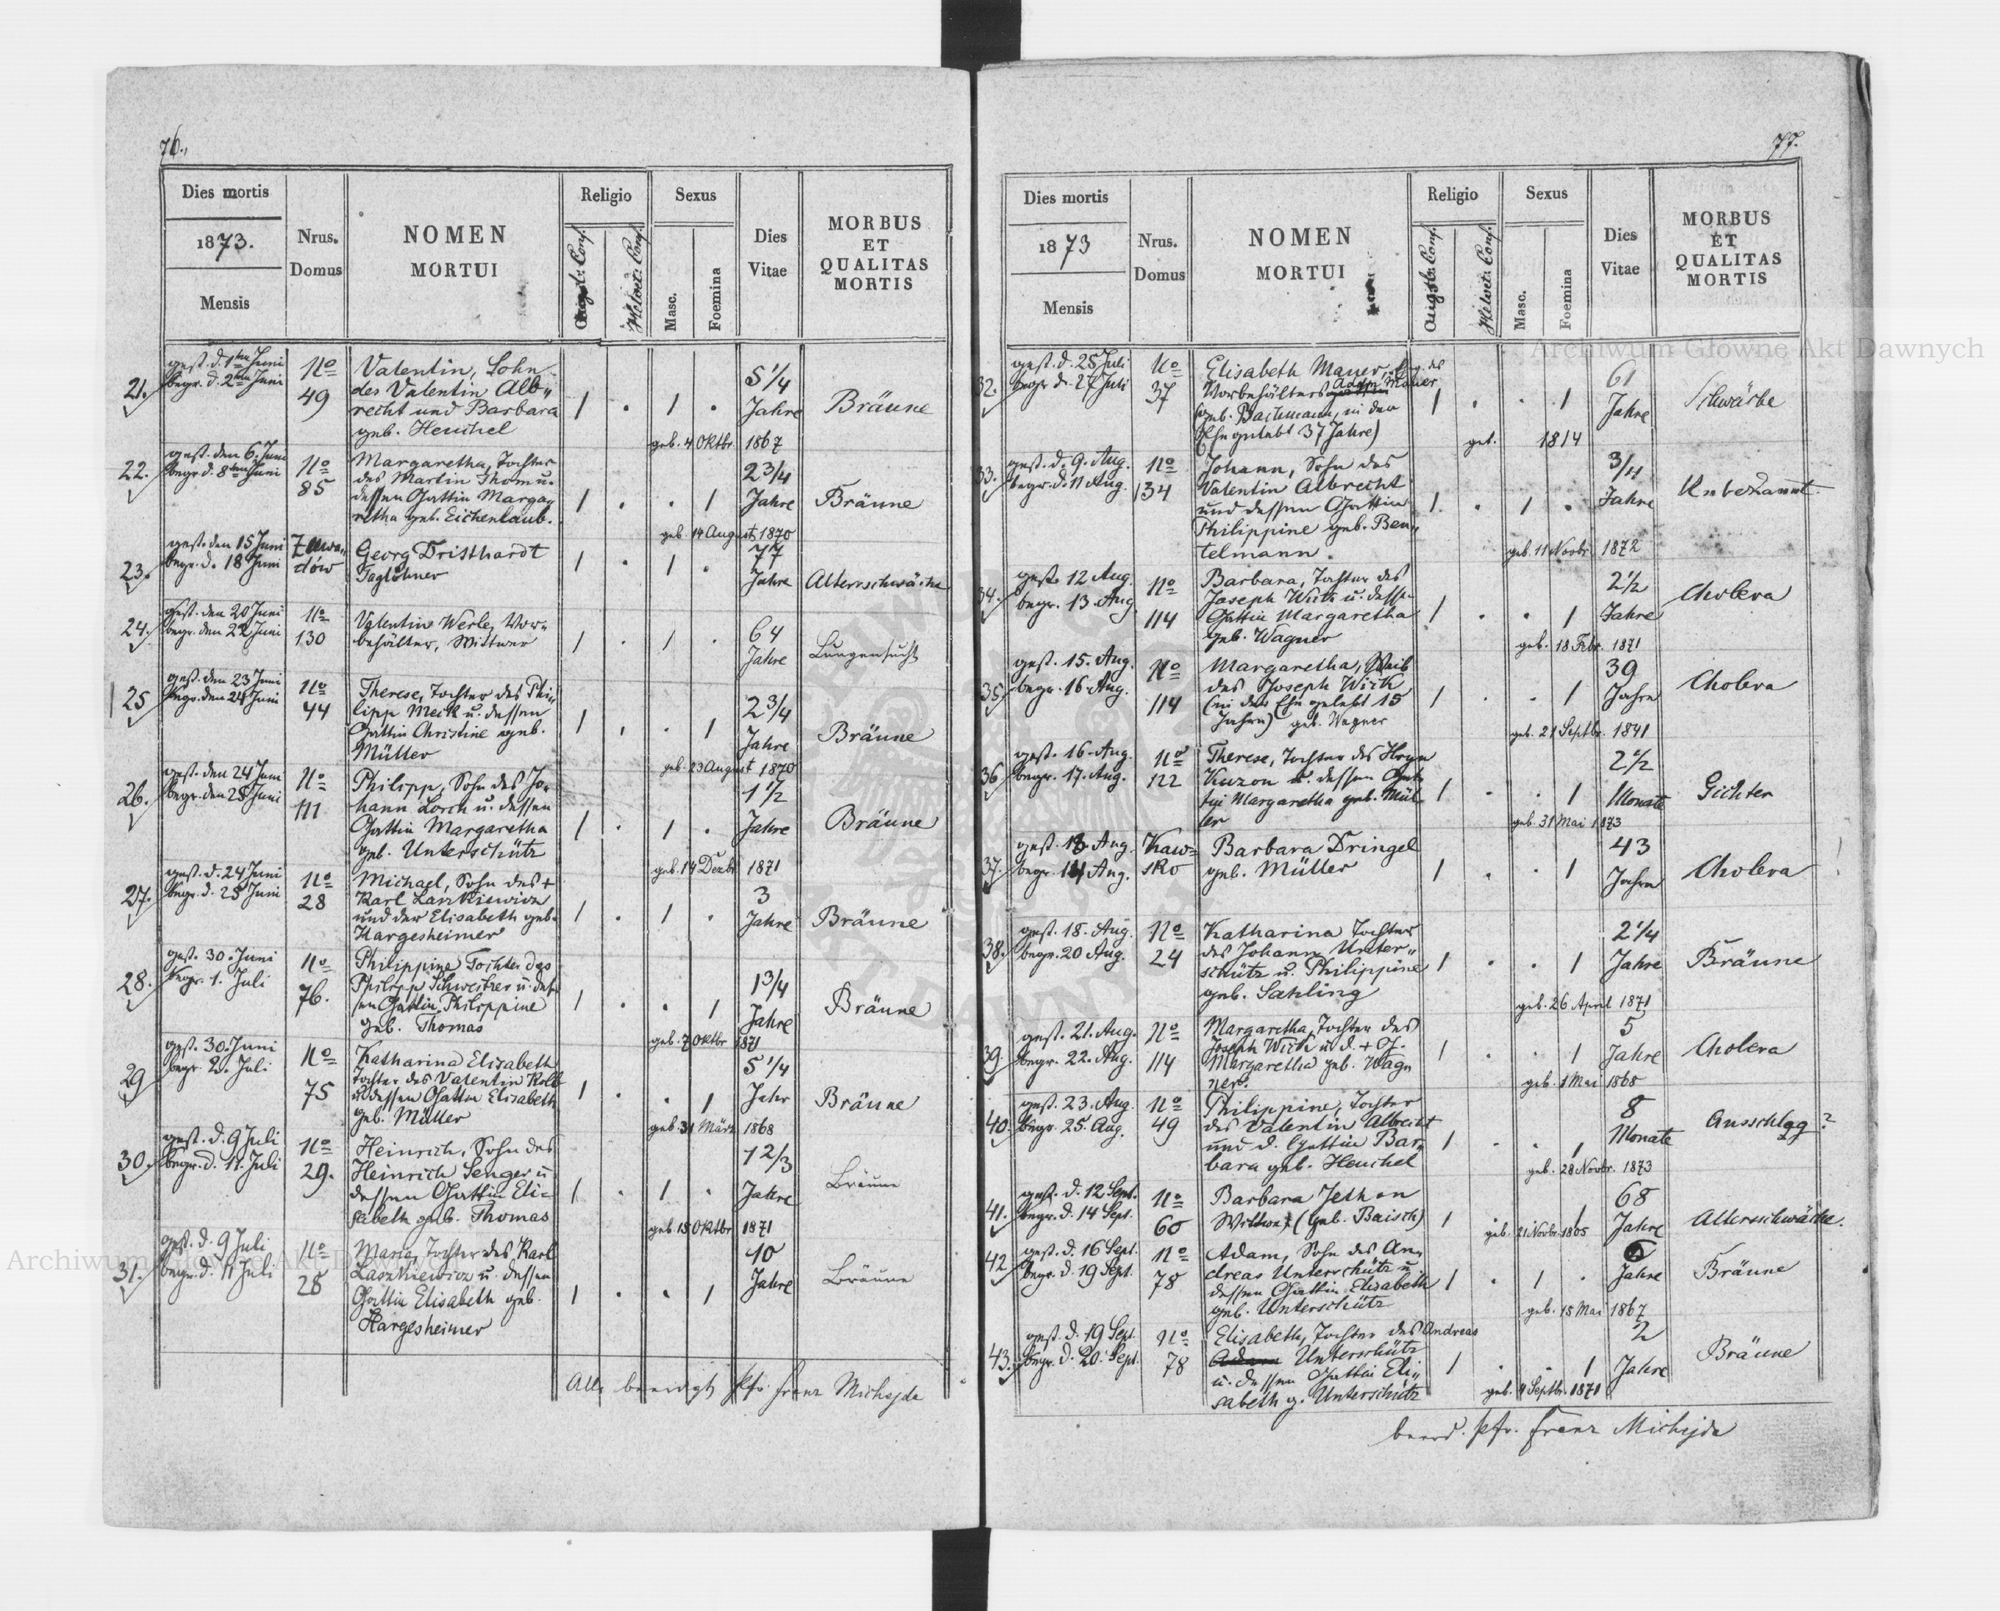 76.,
Dies mortis
1873.
Mensis
Nrus.
Domus
NOMEN
MORTUI
Religio
Augst: Conf.
Helvet: Conf.
Sexus
Masc.
Foemina
Dies
Vitae
MORBUS
ET
QUALITAS
MORTIS
21. gest. d. 1ten Juni
begr. d. 2ten Juni
No 49
Valentin, Sohn
des Valentin Alb„
recht und Barbara
geb. Henchel
1 . 1 .
5 1/4
Jahre
Bräune
geb. 4 Oktbr. 1867
22. gest. den 6. Juni
begr. d. 8ten Juni
No 85
Margaretha, Tochter
des Martin Thom u.
dessen Gattin Marga„
retha geb. Eichenlaub.
1 . . 1
2 3/4
Jahre
Bräune
geb. 14 August 1870
23. gest. den 15 Juni
begr. d. 18 Juni
Zawa„
dów
Georg Dristhardt
Taglöhner
1 . 1 .
77
Jahre
Altersschwäche
24. gest. den 20 Juni
begr. den 22 Juni
No
130
Valentin Werle, Vor„
behälter, Wittwer
1 . 1 .
64
Jahre
Lungensucht
25 gest. den 23 Juni
begr. den 24 Juni
No
44
Therese, Tochter des Phi„
lipp Merk u. dessen
Gattin Christine geb.
Müller
1 . . 1
2 3/4
Jahre
Bräune
geb. 23 August 1870
26. gest. den 24 Juni
begr. den 25 Juni
No
111
Philipp, Sohn des Jo„
hann Lorch u. dessen
Gattin Margaretha
geb. Unterschütz
1 . 1 .
1 1/2
Jahre
Bräune
geb. 14 Dezbr 1871
27. gest. d. 24 Juni
begr. d. 25 Juni
No
28
Michael, Sohn des +
Karl Laszkiewicz
und der Elisabeth geb.
Hargesheimer
1 . 1 .
3
Jahre
Bräune
28. gest. 30. Juni
begr. 1. Juli
No
76.
Philippine Tochter des
Philipp Schweitzer u. des„
sen Gattin Philippine
geb. Thomas
1 . . 1
1 3/4
Jahre
Bräune
geb. 7 Oktbr 1871
29 gest. 30. Juni
begr. 2. Juli
No
75
Katharina Elisabeth
Tochter des Valentin Kolb
u. dessen Gattin Elisabeth
geb. Müller
1 . . 1
5 1/4
Jahr
Bräune
geb. 31 März 1868
30. gest. d. 9 Juli
begr. d. 11. Juli
No
29.
Heinrich, Sohn des
Heinrich Senger u
dessen Gattin Eli„
sabeth geb. Thomas
1 . 1 .
1 2/3
Jahre
Bräune
geb 15 Oktbr 1871
31. gest. d. 9 Juli
begr. d. 11 Juli
No
28
Maria, Tochter des Karl
Laszkiewicz u. dessen
Gattin Elisabeth geb.
Hargesheimer
1 . . 1
10
Jahre
Bräune
Alle beerdigt Pfr. Franz Michejda
77.
Dies mortis
1873
Mensis
Nrus.
Domus
NOMEN
MORTUI
Religio
Augst: Conf.
Helvet: Conf.
Sexus
Masc.
Foemina
Dies
Vitae
MORBUS
ET
QUALITAS
MORTIS
32. gest. d. 25 Juli
begr. d. 27 Juli
No
37
Elisabeth Mauer, des
Vorbehälters Adam Mauer
geb. Bachmann, in der
Ehe gelebt 37 Jahre)
1 . . 1
61
Jahre
Schwäche
geb. 1814
33. gest. d. 9. Aug.
begr. d. 11 Aug.
No
134
Johann, Sohn des
Valentin Albrecht
und dessen Gattin
Philippine geb. Ben„
telmann.
1 . 1 .
3/4
Jahre
Unbekannt.
geb. 11 Novbr. 1872
34. gest. 12 Aug.
begr. 13. Aug
No
114
Barbara, Tochter des
Joseph Wirk u. dess.
Gattin Margaretha
geb. Wagner
1 . . 1
2 1/2
Jahre
Cholera
geb. 18 Febr. 1871
35. gest. 15. Aug.
begr. 16. Aug.
No
114
Margaretha, Weib
des Joseph Wirk
(in der Ehe gelebt 15
Jahre) geb. Wagner
1 . . 1
39
Jahre
Cholera
geb. 21 Septbr. 1841
36 gest. 16. Aug.
begr. 17. Aug.
No
122
Therese, Tochter des Hryn
Kuzon u. dessen Gat„
tin Margaretha geb. Mül„
ler
1 . . 1
2 1/2
Monate
Gichter
geb. 31 Mai 1873
37. gest. 13 Aug.
begr. 14 Aug.
Kaw„
sko
Barbara Dringel
geb. Müller
1 . . 1
43
Jahre
Cholera
38. gest. 18. Aug.
begr. 20 Aug.
No
24
Katharina Tochter
des Johann Unter„
schütz u. Philippine
geb. Sahling
1 . . 1
2 1/4
Jahre
Bräune
geb. 26 April 1871
39. gest. 21. Aug.
begr. 22. Aug.
No
114
Margaretha, Tochter des
Joseph Wirk u d. + G.
Margaretha geb. Wag„
ner.
1 . . 1
5
Jahre
Cholera
geb. 1 Mai 1868
40. gest. 23. Aug.
begr. 25. Aug.
No
49
Philippine, Tochter
des Valentin Albrecht
und d. Gattin Bar„
bara geb. Henchel
1 . . 1
8
Monate
Ausschlag?
geb. 28 Novbr. 1873
41. gest. d. 12 Sept.
begr. d. 14 Sept.
No
60
Barbara Jethon
Wittwe (geb. Baisch)
1 . 1
68
Jahre
Altersschwäche.
geb. 21 Novbr. 1805
42 gest. d. 16 Sept.
begr. d. 19 Sept.
No
78
Adam, Sohn des An„
dreas Unterschütz u.
dessen Gattin Elisabeth
geb. Unterschütz
1 . 1 .
6
Jahre
Bräune
geb. 15 Mai 1867
43. gest. d. 19 Sept.
begr. d. 20. Sept.
No
78
Elisabeth, Tochter des Andreas
Adam Unterschütz
u. dessen Gattin Eli„
sabeth g. Unterschütz
1 . . 1
2
Jahre
Bräune
geb. 4 Septbr. 1871
beerd. Pfr. Franz Michejda
Archiwum Główne Akt Dawnych
Archiwum Główne Akt Dawnych